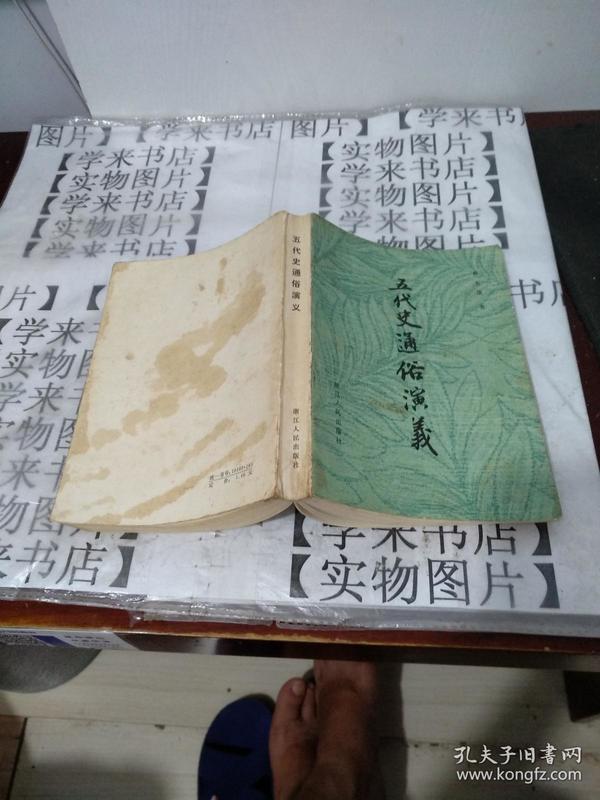 图片】
【学来书店
图片】
【学来书店】
【实物图片】
【学来书店】
【实物图片】
【学来
【实物图片】
【学来书店】
【实物图片】
【学来书店】
【实物图片
书店
图片】
【学来
【学来书店
【实物图片
【学来书
【实物图
【学来书
【实物
物图片】
来书店】
五代史通俗演义
浙江人民出版社
统一书号:
定价:
五代史通俗演義
浙江人民出版社
【学来书店】
【实物图片】
孔夫子旧书网
www.kongfz.com